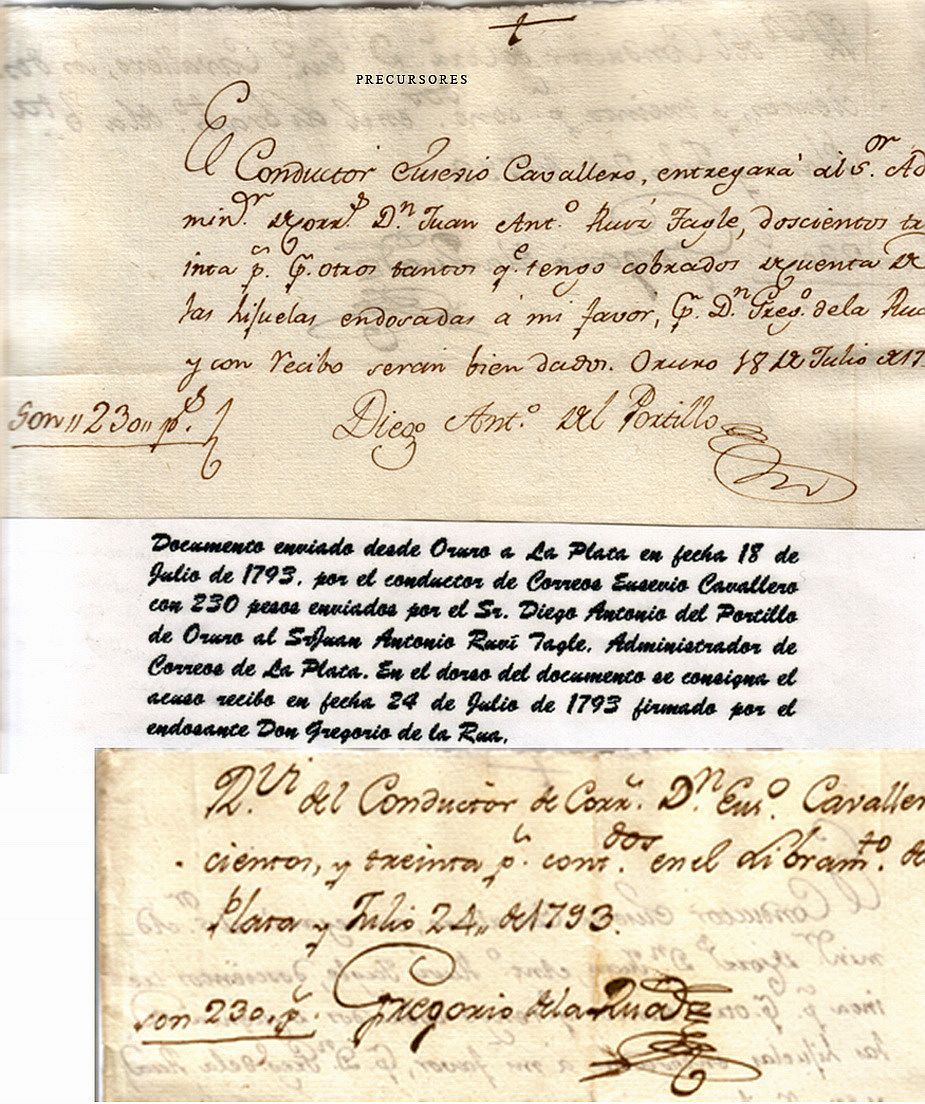 PRECURSORES
El Conductor Eusevio Cavallero, entregará al Sor. Ad
minor. de Corrs. Dn. Juan Anto. Ruiz Tagle, doscientos tre
inta ps. pr. otros tantos qe. tengo cobrados de quenta de
las hijuelas endosadas á mi favor, pr. Dn. Grego. de la Rua
y con recibo serán bien dados. Oruro 18 de Julio de 17
Son,, 230,, ps.
Diego Anto. del Portillo
Documento enviado desde Oruro a La Plata en fecha 18 de
Julio de 1793, por el conductor de Correos Eusevio Cavallero
con 230 pesos enviados por el Sr. Diego Antonio del Portillo
de Oruro al SrJuan Antonio Ruvi Tagle, Administrador de
Correos de La Plata. En el dorso del documento se consigna el
acuso recibo en fecha 24 de Julio de 1793 firmado por el
endosante Don Gregorio de la Rua.
Rvi. del Conductor de Corrs. Dn. Euso. Cavaller
cientos, y treinta ps. contdos. en el Libramto. de
Plata y Julio 24,, de 1793.
son 230. ps.
Gregorio de la Rua